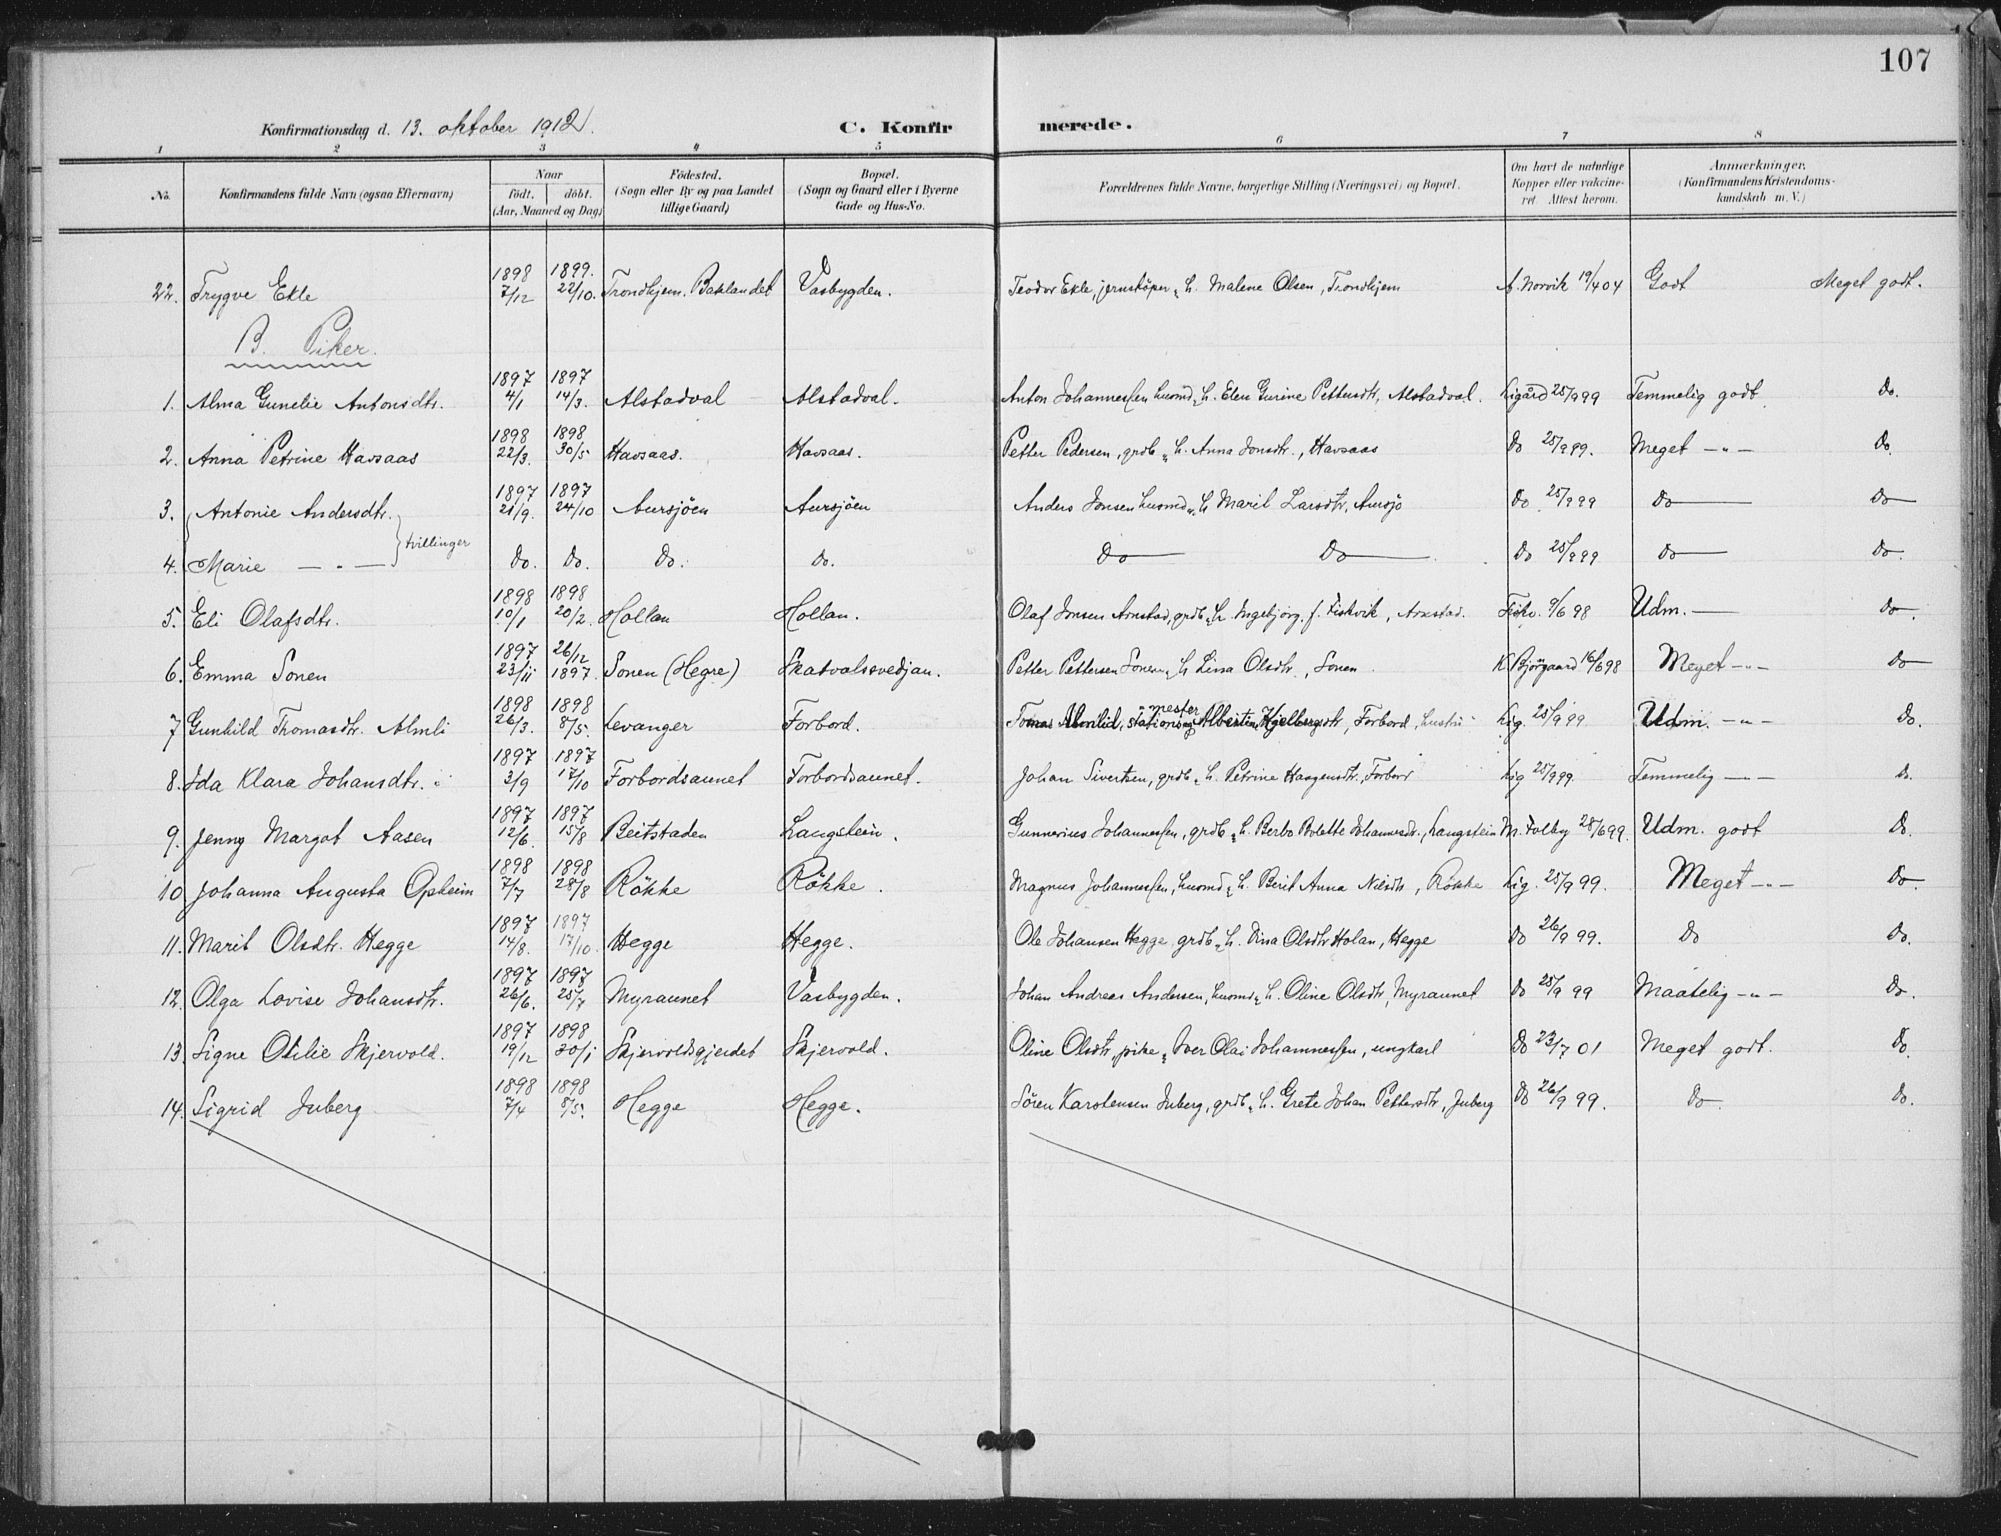 107
Konfirmationsdag d. 13. oktober 1912. C. Konfirmerede.
1 2 3 4 5 6 7 8
No. Konfirmandens fulde Navn (ogsaa Efternavn) Naar født. døbt. (Aar, Maaned og Dag) Födested. (Sogn eller By og paa Landet tillige Gaard) Bopæl. (Sogn og Gaard eller i Byerne Gade og Hus-No. Forældrenes fulde Navne, borgerlige Stilling (Næringsvei) og Bopæl. Om havt de naturlige Kopper eller vakcineret. Attest herom. Anmærkninger. (Konfirmandens Kristendomskundskab m. V.)
22. Trygve Ekle 1898 7/12 1899. 22/10. Trondhjem. Baklandet Vasbygden. Teodor Ekle, jernstöper, h. Malene Olsen, Trondhjem A. Norvik 19/4 04 Godt Meget godt.
B. Piker.
1. Alma Gunelie Antonsdtr. 1897 4/1 1897 14/3. Alstadval Alstadval. Anton Johannessen husmd, h. Elen Gurine Pettersdtr, Alstadval. Ligård 25/9 99 Temmelig godt Do.
2. Anna Petrine Havsaas 1898 22/3. 1898 30/5 Havsaas. Havsaas. Petter Pedersen, grdb " h. Anna Jonsdtr., Havsaas Do 25/9 99. Meget -"- Do.
3. Antonie Andersdtr. } tvillinger 1897 21/9. 1897 24/10 Aursjöen Aursjöen Anders Jonsen husmd " h Marit Larsdtr, Aursjö Do 25/9 99 Do Do
4. Marie -"- Do. Do. Do. Do. Do Do Do 25/9 99 Do Do.
5. Eli Olafsdtr. 1898 10/1 1898 20/2. Hollan Hollan. Olaf Jonsen Arnstad, grdb " h. Ingebjörg f. Fiskvik, Arnstad. Fiskv. 9/6 98 Udm. — Do.
6. Emma Sonen 1897 23/11 26/12 1897. Sonen (Hegre) Skatvalssvedjan. Petter Pettersen Sonen " h Lina Olsdtr., Sonen K Bjørgaard 16/6 98 Meget -"- Do
7 Gunhild Thomasdtr. Almli 1898 26/3. 1898 8/5. Levanger Forbord. Tomas Almlid, stationsmester Albertine Kjelbergsdtr, Forbord, hustru Lig. 25/9 99 Udm. -"- Do.
8. Ida Klara Johansdtr. 1897 3/9 1897 17/10 Forbordsaunet Forbordsaunet. Johan Sivertsen, grdb " h. Petrine Haagensdtr, Forbord Lig 25/9 99. Temmelig -"- Do.
9. Jenny Margot Aasen 1897 12/6. 1897 15/8 Beitstaden Langstein. Gunnerius Johannessen, grdb " h. Berbo Bolette Johannesdtr., Langstein M. Folby 28/6 99. Udm. godt Do.
10 Johanna Augusta Opheim 1898 7/7 1898 28/8 Rökke Rökke. Magnus Johannessen, husmd " h. Berit Anna Nilsdtr, Rökke Lig. 25/9 99. Meget -"- Do.
11. Marit Olsdtr. Hegge 1897 14/8. 1897 17/10. Hegge Hegge. Ole Johansen Hegge grdb " h. Dina Olsdtr Holan, Hegge Do 26/9 99. Do Do.
12. Olga Lovise Johansdtr. 1897 26/6. 1897 25/7 Myraunet Vasbygden. Johan Andreas Andersen, husmd " h. Oline Olsdtr, Myraunet Do 25/9 99 Maatelig -"- Do.
13. Signe Otilie Skjervold. 1897 19/12 1898 30/1 Skjervoldsgjerdet Skjervold. Oline Olsdtr, pike " Iver Olai Johannessen, ungkarl Do 23/7 01 Meget godt. Do.
14. Sigrid Juberg 1898 7/4 1898 8/5. Hegge Hegge. Sören Karstensen Juberg, grdb " h. Grete Johan Pettersdtr, Juberg Do 26/9 99. Do. Do.